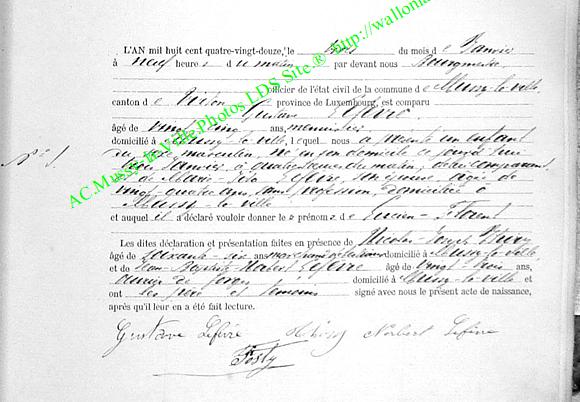 L'AN mil huit cent quatre-vingt-douze, le trois du mois de Janvier
à neuf heures du matin par devant nous Bourgmestre
officier de l'état civil de la commune de Mussy-la-ville,
canton de Virton province de Luxembourg, est comparu
Gustave Lefèvre
âgé de vingt cinq ans, menuisier
domicilié à Mussy-la-ville, lequel nous a présenté un enfant
du sexe masculin, né en son domicile ce jourd'hui
trois Janvier, à quatre heures du matin, de lui comparant
et de Marie Lefèvre, son épouse, âgée de
vingt quatre ans, sans profession, domiciliée à
Mussy-la-ville
et auquel il a déclaré vouloir donner les prénoms de Lucien-Florent
Les dites déclaration et présentation faites en présence de Nicolas-Joseph
âgé de soixante-six ans domicilié à Mussy-la-ville
et de Jean-Baptiste Lefèvre âgé de vingt-trois ans,
ouvrier de forges domicilié à Mussy-la-ville et
ont les père et témoins signé avec nous le présent acte de naissance,
après qu'il leur en a été fait lecture.
Gustave Lefèvre Norbert Lefèvre
Fosty
N° 1
AC.Mussy-la-Ville.Photos LDS Site.® http://wallonia